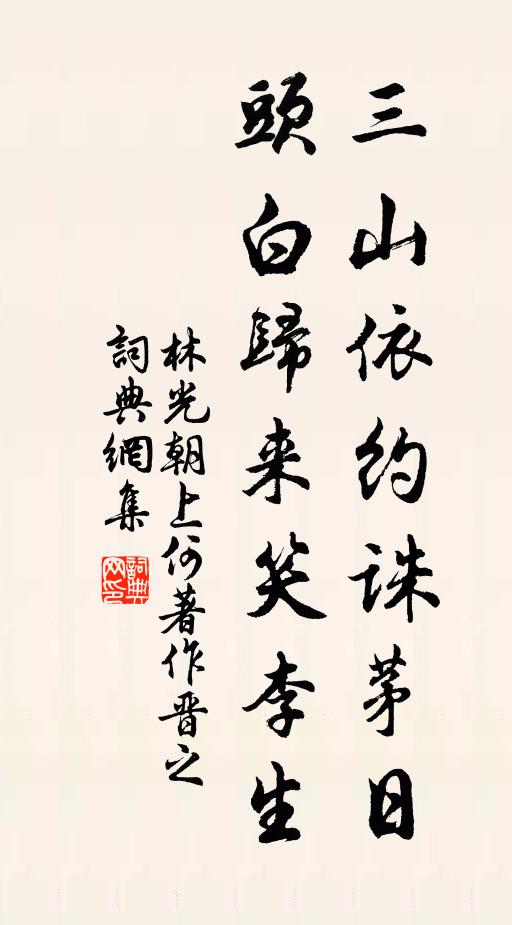 三山依約誅茅日
頭白歸来笑李生
林光朝上何著作晋之
詞典網集
詞典網印